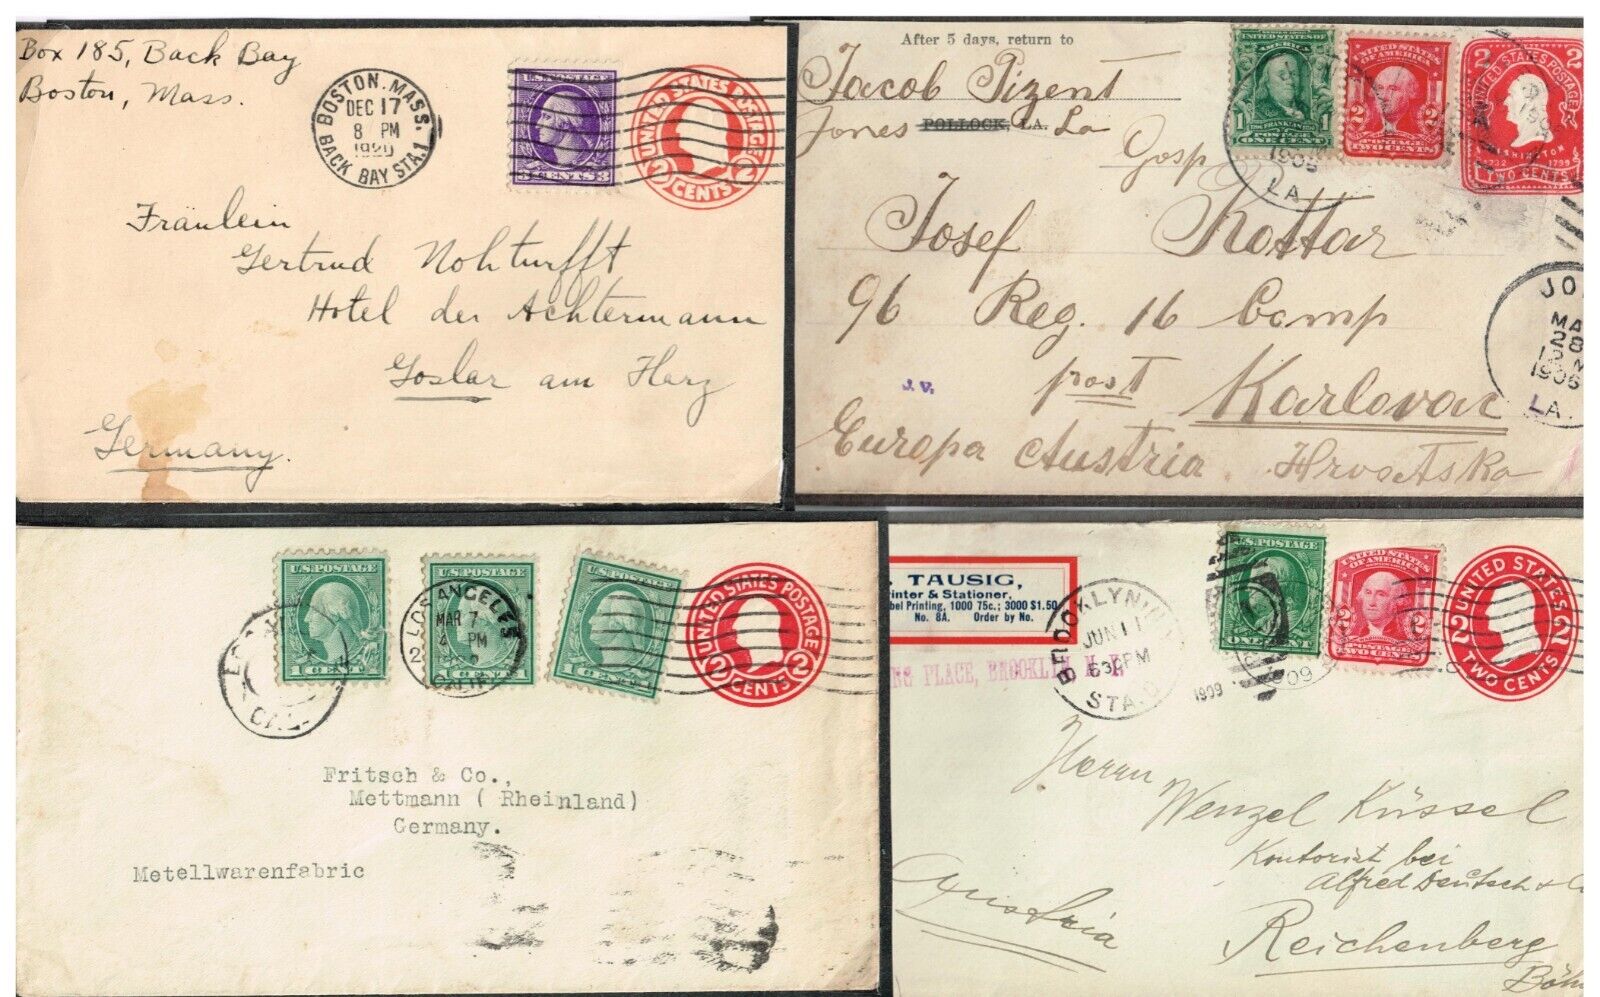 Box 185, Back Bay
Boston, Mass.
BOSTON. MASS.
DEC 17
8 PM
1920
BACK BAY STA.1
U.S. POSTAGE
3 CENTS 3
UNITED STATES POSTAGE
2 CENTS 2
Fräulein
Gertrud Nohturfft
Hotel der Achtermann
Goslar am Harz
Germany.
After 5 days, return to
Jacob Pizent
Jones POLLOCK, LA. La
UNITED STATES OF AMERICA
1 POSTAGE 1
ONE CENT
UNITED STATES OF AMERICA
2 POSTAGE 2
TWO CENTS
2 2
UNITED STATES POSTAGE
WASHINGTON
1732 1799
TWO CENTS
LA.
Gosp
Josef Kottar
96 Reg. 16 Comp
post Karlovac
J.V.
Europa Austria Hrvatska
JO
MA
28
1906
LA.
U.S. POSTAGE
1 CENT 1
U.S. POSTAGE
U.S. POSTAGE
1 CENT 1
LOS ANGELES
MAR 7
4 PM
CALIF
2
UNITED STATES POSTAGE
2 CENTS 2
Fritsch & Co.,
Mettmann ( Rheinland)
Germany.
Metellwarenfabric
TAUSIG,
inter & Stationer,
bel Printing, 1000 75c.; 3000 $1.50
No. 8A. Order by No.
NG PLACE, BROOKLYN N. Y.
BROOKLYN
JUN 11
630PM
STA. D.
1909
U.S. POSTAGE
ONE CENT
UNITED STATES OF AMERICA
2 POSTAGE 2
TWO CENTS
UNITED STATES
2 2
TWO CENTS
Herrn
Wenzel Küssel
Kontorist bei
Alfred Deutsch & Co
Austria
Reichenberg
Böh